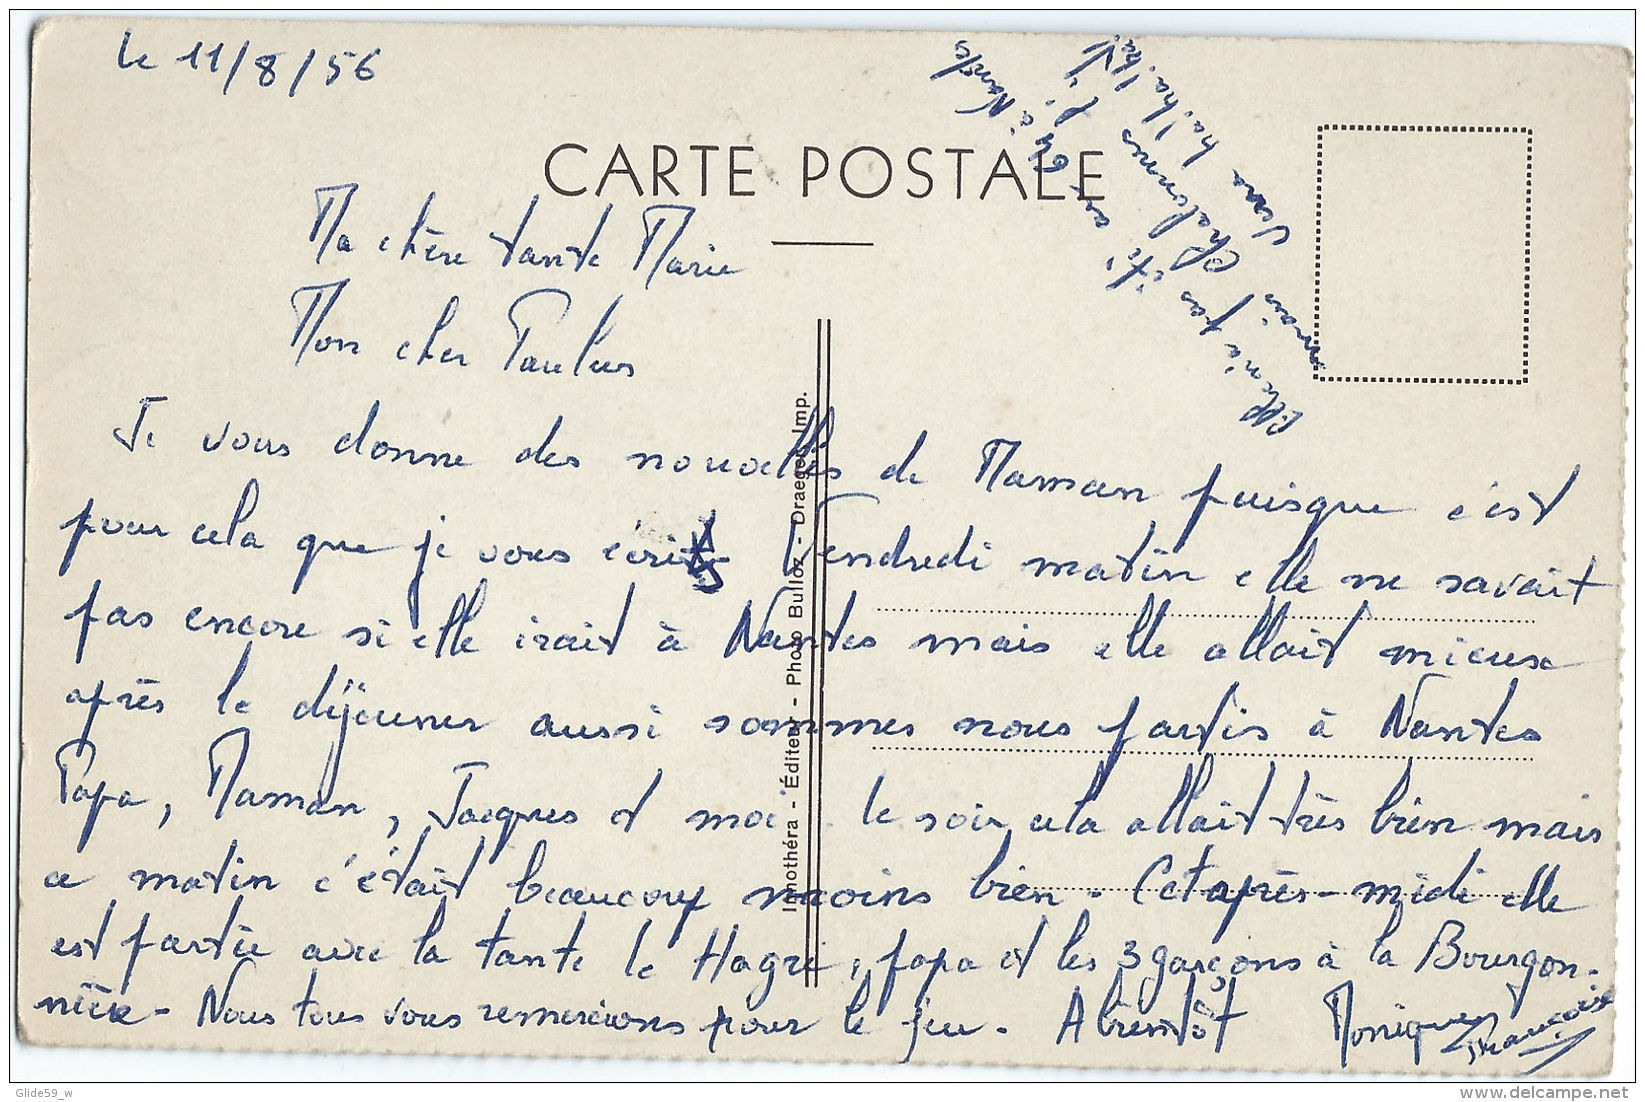 le 11/8/56
CARTE POSTALE
Ma chère tante Marie
Mon cher Paulus
Je vous donne des nouvelles de Maman puisque c'est
pour cela que je vous écris Vendredi matin elle ne savait
pas encore si elle irait à Nantes mais elle allait mieux
après le déjeuner aussi sommes nous partis à Nantes
Papa, Maman, Jacques et moi. le soir cela allait très bien mais
ce matin c'était beaucoup moins bien. Cet après-midi elle
est partie avec la tante le Hagre, papa et les 3 garçons à la Bourgon-
nière. Nous tous vous remercions pour le jeu. A bientôt Monique
Françoise
pas été au
mais Chalonnes
à Nantes
Innothéra - Éditeur - Photo Bulloz - Draeger Imp.
Glide59_w
delcampe.net